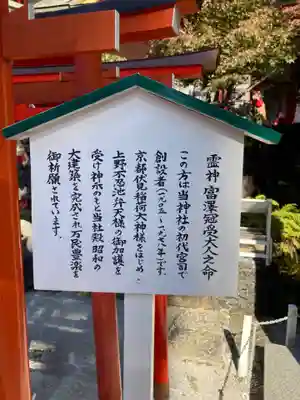 霊神 富澤冠受大人之命
この方は当神社の初代宮司で
創設者(一九〇五~一九七八年)です。
京都伏見稲荷大神様をはじめ、
上野不忍池弁天様の御加護を
受け神示のもと当社殿、昭和の
大建築を完成され万民豊楽を
御祈願されています。